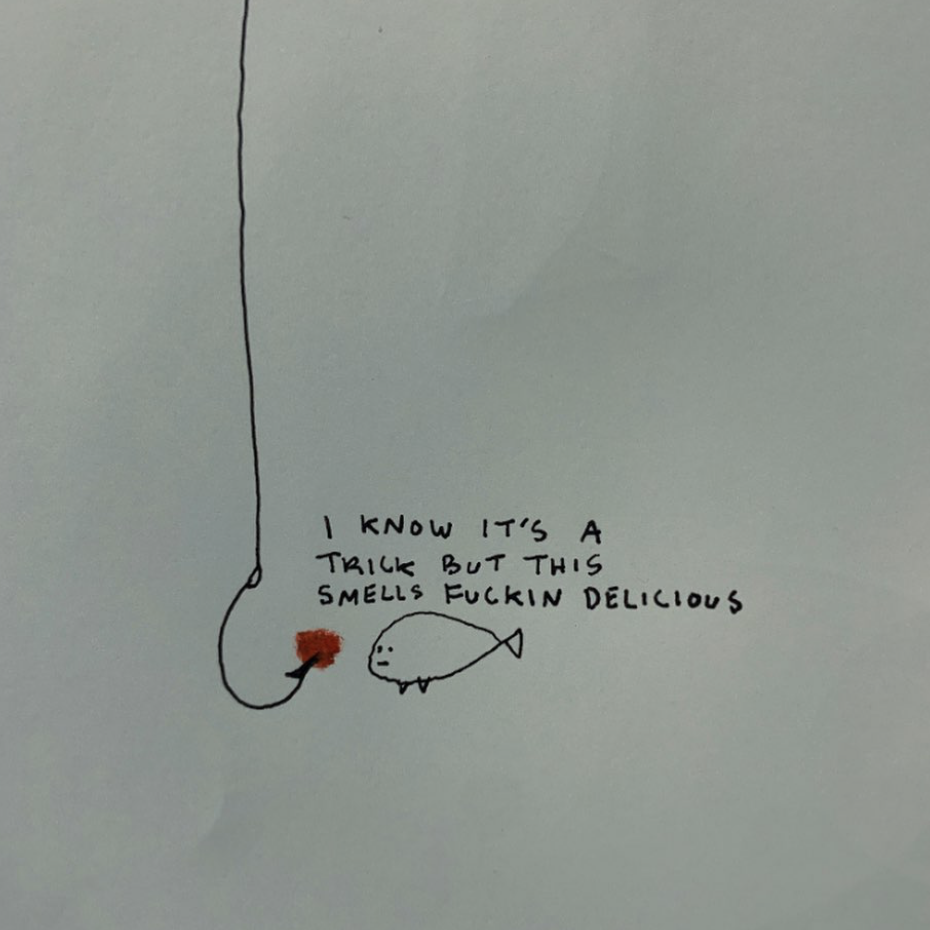 I KNOW IT'S A
TRICK BUT THIS
SMELLS FUCKIN DELICIOUS